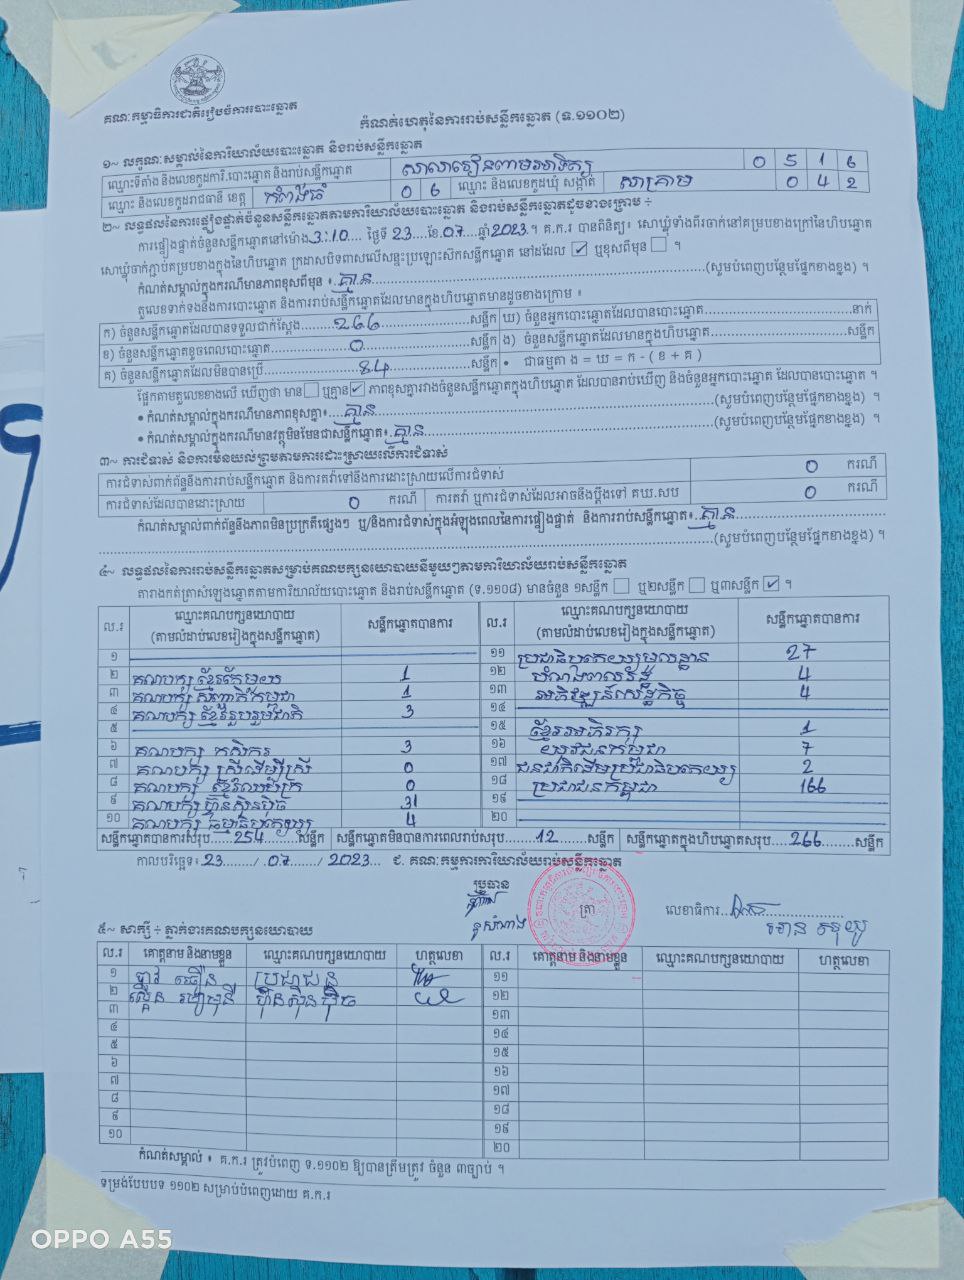 គណៈកម្មាធិការជាតិរៀបចំការបោះឆ្នោត
កំណត់ហេតុនៃការរាប់សន្លឹកឆ្នោត (ទ.១១០២)
១~ លក្ខណៈសម្គាល់នៃការិយាល័យបោះឆ្នោត និងរាប់សន្លឹកឆ្នោត
ឈ្មោះទីតាំង និងលេខកូដការិ.បោះឆ្នោត និងរាប់សន្លឹកឆ្នោត សាលារៀន 0 5 1 6
ឈ្មោះ និងលេខកូដរាជធានី ខេត្ត កំពង់ធំ 0 6 ឈ្មោះ និងលេខកូដឃុំ សង្កាត់ សាគ្រាម 0 4 2
២~ លទ្ធផលនៃការផ្ទៀងផ្ទាត់ចំនួនសន្លឹកឆ្នោតតាមការិយាល័យបោះឆ្នោត និងរាប់សន្លឹកឆ្នោតដូចខាងក្រោម ÷
ការផ្ទៀងផ្ទាត់ចំនួនសន្លឹកឆ្នោតនៅម៉ោង 3:10 ថ្ងៃទី 23 ខែ 07 ឆ្នាំ 2023 ។ គ.ក.រ បានពិនិត្យ៖ សោឃ្លុំទាំងពីរចាក់នៅគម្របខាងក្រៅនៃហិបឆ្នោត
សោឃ្លុំចាក់ភ្ជាប់គម្របខាងក្នុងនៃហិបឆ្នោត ក្រដាសបិទពាសលើសន្ទះប្រឡោះស៊កសន្លឹកឆ្នោត នៅដដែល ☑ ឬខុសពីមុន ☐ ។
កំណត់សម្គាល់ក្នុងករណីមានភាពខុសពីមុន ៖ គ្មាន (សូមបំពេញបន្ថែមផ្នែកខាងខ្នង) ។
តួលេខទាក់ទងនឹងការបោះឆ្នោត និងការរាប់សន្លឹកឆ្នោតដែលមានក្នុងហិបឆ្នោតមានដូចខាងក្រោម ៖
ក) ចំនួនសន្លឹកឆ្នោតដែលបានទទួលជាក់ស្តែង 266 សន្លឹក ឃ) ចំនួនអ្នកបោះឆ្នោតដែលបានបោះឆ្នោត នាក់
ខ) ចំនួនសន្លឹកឆ្នោតខូចពេលបោះឆ្នោត 0 សន្លឹក ង) ចំនួនសន្លឹកឆ្នោតដែលមានក្នុងហិបឆ្នោត សន្លឹក
គ) ចំនួនសន្លឹកឆ្នោតដែលមិនបានប្រើ 84 សន្លឹក • ជាធម្មតា ង = ឃ = ក - ( ខ + គ )
ផ្អែកតាមតួលេខខាងលើ ឃើញថា មាន ☐ ឬគ្មាន ☑ ភាពខុសគ្នារវាងចំនួនសន្លឹកឆ្នោតក្នុងហិបឆ្នោត ដែលបានរាប់ឃើញ និងចំនួនអ្នកបោះឆ្នោត ដែលបានបោះឆ្នោត ។
• កំណត់សម្គាល់ក្នុងករណីមានភាពខុសគ្នា៖ គ្មាន (សូមបំពេញបន្ថែមផ្នែកខាងខ្នង) ។
• កំណត់សម្គាល់ក្នុងករណីមានវត្ថុមិនមែនជាសន្លឹកឆ្នោត៖ គ្មាន (សូមបំពេញបន្ថែមផ្នែកខាងខ្នង) ។
៣~ ការជំទាស់ និងការមិនយល់ព្រមតាមការដោះស្រាយលើការជំទាស់
ការជំទាស់ពាក់ព័ន្ធនឹងការរាប់សន្លឹកឆ្នោត និងការតវ៉ាទៅនឹងការដោះស្រាយលើការជំទាស់ 0 ករណី
ការជំទាស់ដែលបានដោះស្រាយ 0 ករណី ការតវ៉ា ឬការជំទាស់ដែលអាចនឹងប្តឹងទៅ គឃ.សប 0 ករណី
កំណត់សម្គាល់ពាក់ព័ន្ធនឹងភាពមិនប្រក្រតីផ្សេងៗ ឬ/និងការជំទាស់ក្នុងអំឡុងពេលនៃការផ្ទៀងផ្ទាត់ និងការរាប់សន្លឹកឆ្នោត៖ គ្មាន
(សូមបំពេញបន្ថែមផ្នែកខាងខ្នង) ។
៤~ លទ្ធផលនៃការរាប់សន្លឹកឆ្នោតសម្រាប់គណបក្សនយោបាយនីមួយៗតាមការិយាល័យរាប់សន្លឹកឆ្នោត
តារាងកត់ត្រាសំឡេងឆ្នោតតាមការិយាល័យបោះឆ្នោត និងរាប់សន្លឹកឆ្នោត (ទ.១១០៨) មានចំនួន ១សន្លឹក ☐ ឬ២សន្លឹក ☐ ឬ៣សន្លឹក ☑ ។
ល.រ ឈ្មោះគណបក្សនយោបាយ (តាមលំដាប់លេខរៀងក្នុងសន្លឹកឆ្នោត) សន្លឹកឆ្នោតបានការ ល.រ ឈ្មោះគណបក្សនយោបាយ (តាមលំដាប់លេខរៀងក្នុងសន្លឹកឆ្នោត) សន្លឹកឆ្នោតបានការ
១ ១១ ប្រជាធិបតេយ្យមូលដ្ឋាន 27
២ គណបក្ស ខ្មែរក្រោកឈរ 1 ១២ 4
៣ គណបក្ស សញ្ជាតិកម្ពុជា 1 ១៣ អភិវឌ្ឍន៍សេដ្ឋកិច្ច 4
៤ គណបក្ស ខ្មែររួបរួមជាតិ 3 ១៤
៥ ១៥ ខ្មែរអភិរក្ស 1
៦ គណបក្ស កសិករ 3 ១៦ យុវជនកម្ពុជា 7
៧ គណបក្ស ស្រីដើម្បីស្រី 0 ១៧ ជនជាតិដើមប្រជាធិបតេយ្យ 2
៨ គណបក្ស ខ្មែរឈប់ក្រ 0 ១៨ ប្រជាជនកម្ពុជា 166
៩ គណបក្ស ហ៊្វុនស៊ិនប៉ិច 31 ១៩
១០ គណបក្ស ធម្មាធិបតេយ្យ 4 ២០
សន្លឹកឆ្នោតបានការសរុប 254 សន្លឹក សន្លឹកឆ្នោតមិនបានការពេលរាប់សរុប 12 សន្លឹក សន្លឹកឆ្នោតក្នុងហិបឆ្នោតសរុប 266 សន្លឹក
កាលបរិច្ឆេទ៖ 23 / 07 / 2023 ជ. គណៈកម្មការការិយាល័យរាប់សន្លឹកឆ្នោត
ប្រធាន ត្រា លេខាធិការ
៥~ សាក្សី ÷ ភ្នាក់ងារគណបក្សនយោបាយ
ល.រ គោត្តនាម និងនាមខ្លួន ឈ្មោះគណបក្សនយោបាយ ហត្ថលេខា ល.រ គោត្តនាម និងនាមខ្លួន ឈ្មោះគណបក្សនយោបាយ ហត្ថលេខា
១ ប្រជាជន ១១
២ ហ៊្វុនស៊ិនប៉ិច ១២
៣ ១៣
៤ ១៤
៥ ១៥
៦ ១៦
៧ ១៧
៨ ១៨
៩ ១៩
១០ ២០
កំណត់សម្គាល់ ៖ គ.ក.រ ត្រូវបំពេញ ទ.១១០២ ឱ្យបានត្រឹមត្រូវ ចំនួន ៣ច្បាប់ ។
ទម្រង់បែបបទ ១១០២ សម្រាប់បំពេញដោយ គ.ក.រ
OPPO A55